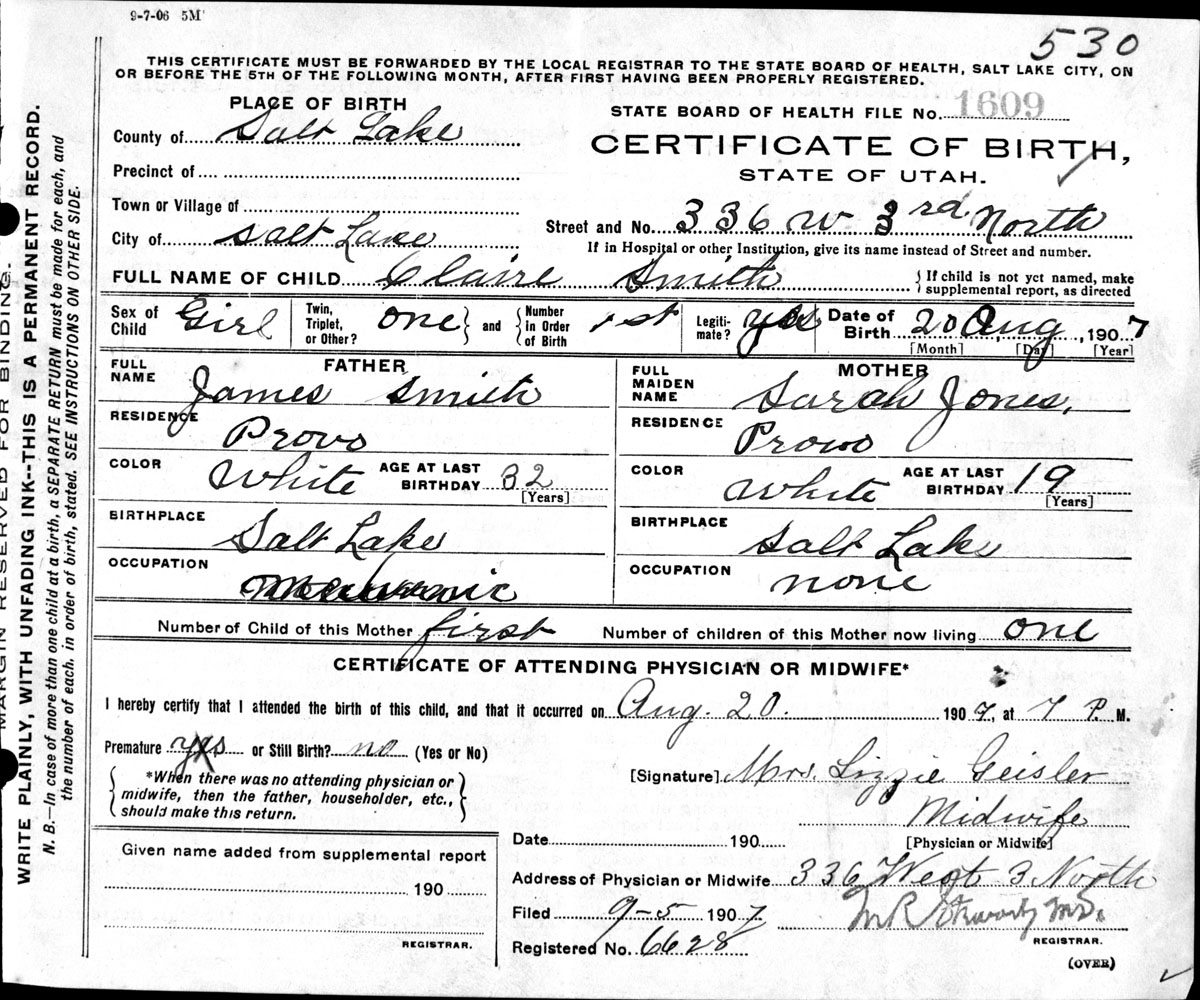 9-7-06 5M
530
THIS CERTIFICATE MUST BE FORWARDED BY THE LOCAL REGISTRAR TO THE STATE BOARD OF HEALTH, SALT LAKE CITY, ON
OR BEFORE THE 5TH OF THE FOLLOWING MONTH, AFTER FIRST HAVING BEEN PROPERLY REGISTERED.
MARGIN RESERVED FOR BINDING.
WRITE PLAINLY, WITH UNFADING INK--THIS IS A PERMANENT RECORD.
N. B.—In case of more than one child at a birth, a SEPARATE RETURN must be made for each, and
the number of each, in order of birth, stated. SEE INSTRUCTIONS ON OTHER SIDE.
PLACE OF BIRTH
County of Salt Lake
Precinct of
Town or Village of
City of Salt Lake
STATE BOARD OF HEALTH FILE No. 1609
CERTIFICATE OF BIRTH,
STATE OF UTAH.
Street and No. 336 W 3rd North
If in Hospital or other Institution, give its name instead of Street and number.
FULL NAME OF CHILD Claire Smith
{ If child is not yet named, make
supplemental report, as directed
Sex of Child Girl
Twin, Triplet, or Other? one } and { Number in Order of Birth 1st
Legiti-mate? yes
Date of Birth 20 Aug, 1907
[Month] [Day] [Year]
FATHER
FULL NAME James Smith
RESIDENCE Provo
COLOR White AGE AT LAST BIRTHDAY 32
[Years]
BIRTHPLACE Salt Lake
OCCUPATION
MOTHER
FULL MAIDEN NAME Sarah Jones.
RESIDENCE Provo
COLOR White AGE AT LAST BIRTHDAY 19
[Years]
BIRTHPLACE Salt Lake
OCCUPATION none
Number of Child of this Mother first Number of children of this Mother now living one
CERTIFICATE OF ATTENDING PHYSICIAN OR MIDWIFE*
I hereby certify that I attended the birth of this child, and that it occurred on Aug. 20. 1907, at 7 P. M.
Premature yes or Still Birth? no (Yes or No)
{ *When there was no attending physician or
midwife, then the father, householder, etc.,
should make this return. }
[Signature] Mrs. Lizzie Geisler
Midwife
[Physician or Midwife]
Date 190
Given name added from supplemental report
190
REGISTRAR.
Address of Physician or Midwife 336 West 3 North
Filed 9-5 1907
Registered No. 6628
REGISTRAR.
(OVER)